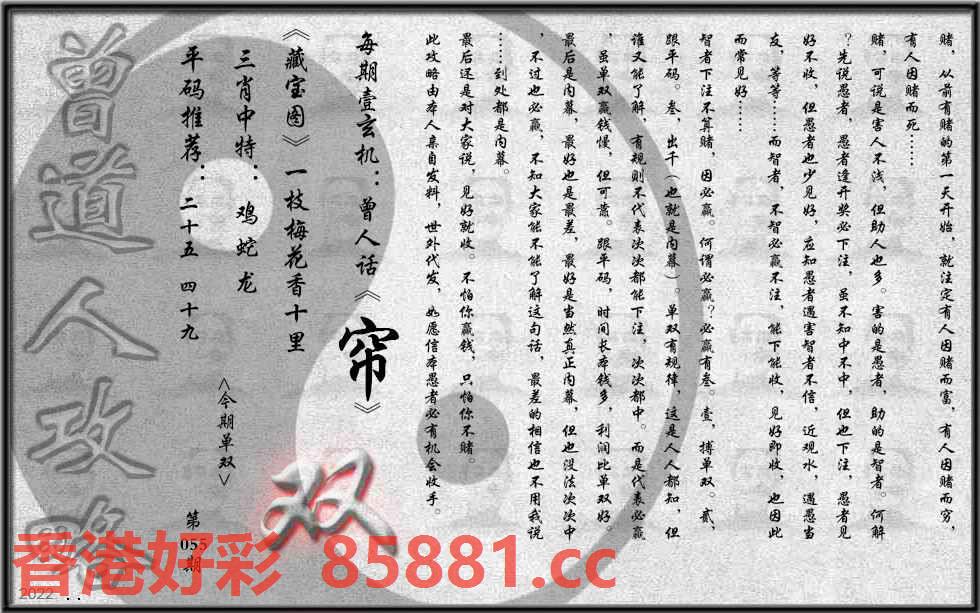 赌，从前有赌的第一天开始，就注定有人因赌而富，有人因赌而穷，
有人因赌而死……
赌，可说是害人不浅，但助人也多。害的是愚者，助的是智者。何解
？先说愚者，愚者逢开奖必下注，虽不知中不中，但也下注，愚者见
好不收，但愚者也少见好，应知愚者遇害智者不信，近观水，遇愚当
友，等等……而智者，不智必赢不注，能下能收，见好即收，也因此
而常见好……
智者下注不算赌，因必赢。何谓必赢？必赢有叁。壹，搏单双。贰，
跟平码。叁，出千（也就是内幕）。单双有规律，这是人人都知，但
谁又能了解，有规则不代表次次都能下注，次次都中。而是代表必赢
，虽单双赢钱慢，但可蓄。跟平码，时间长本钱多，利润比单双好。
最后是内幕，最好也是最差，最好是当然真正内幕，但也没法次次中
，不过也必赢，不知大家能不能了解这句话，最差的相信也不用我说
……到处都是内幕。
最后还是对大家说，见好就收。不怕你赢钱，只怕你不赌。
此攻略由本人亲自发料，世外代发，如愿信本愚者必有机会收手。
每期壹玄机：曾人话《帘》
《藏宝图》一枝梅花香十里
三肖中特：鸡蛇龙
平码推荐：二十五 四十九
<今期单双>
双
第055期
曾道人攻略
香港好彩 85881.cc
2022